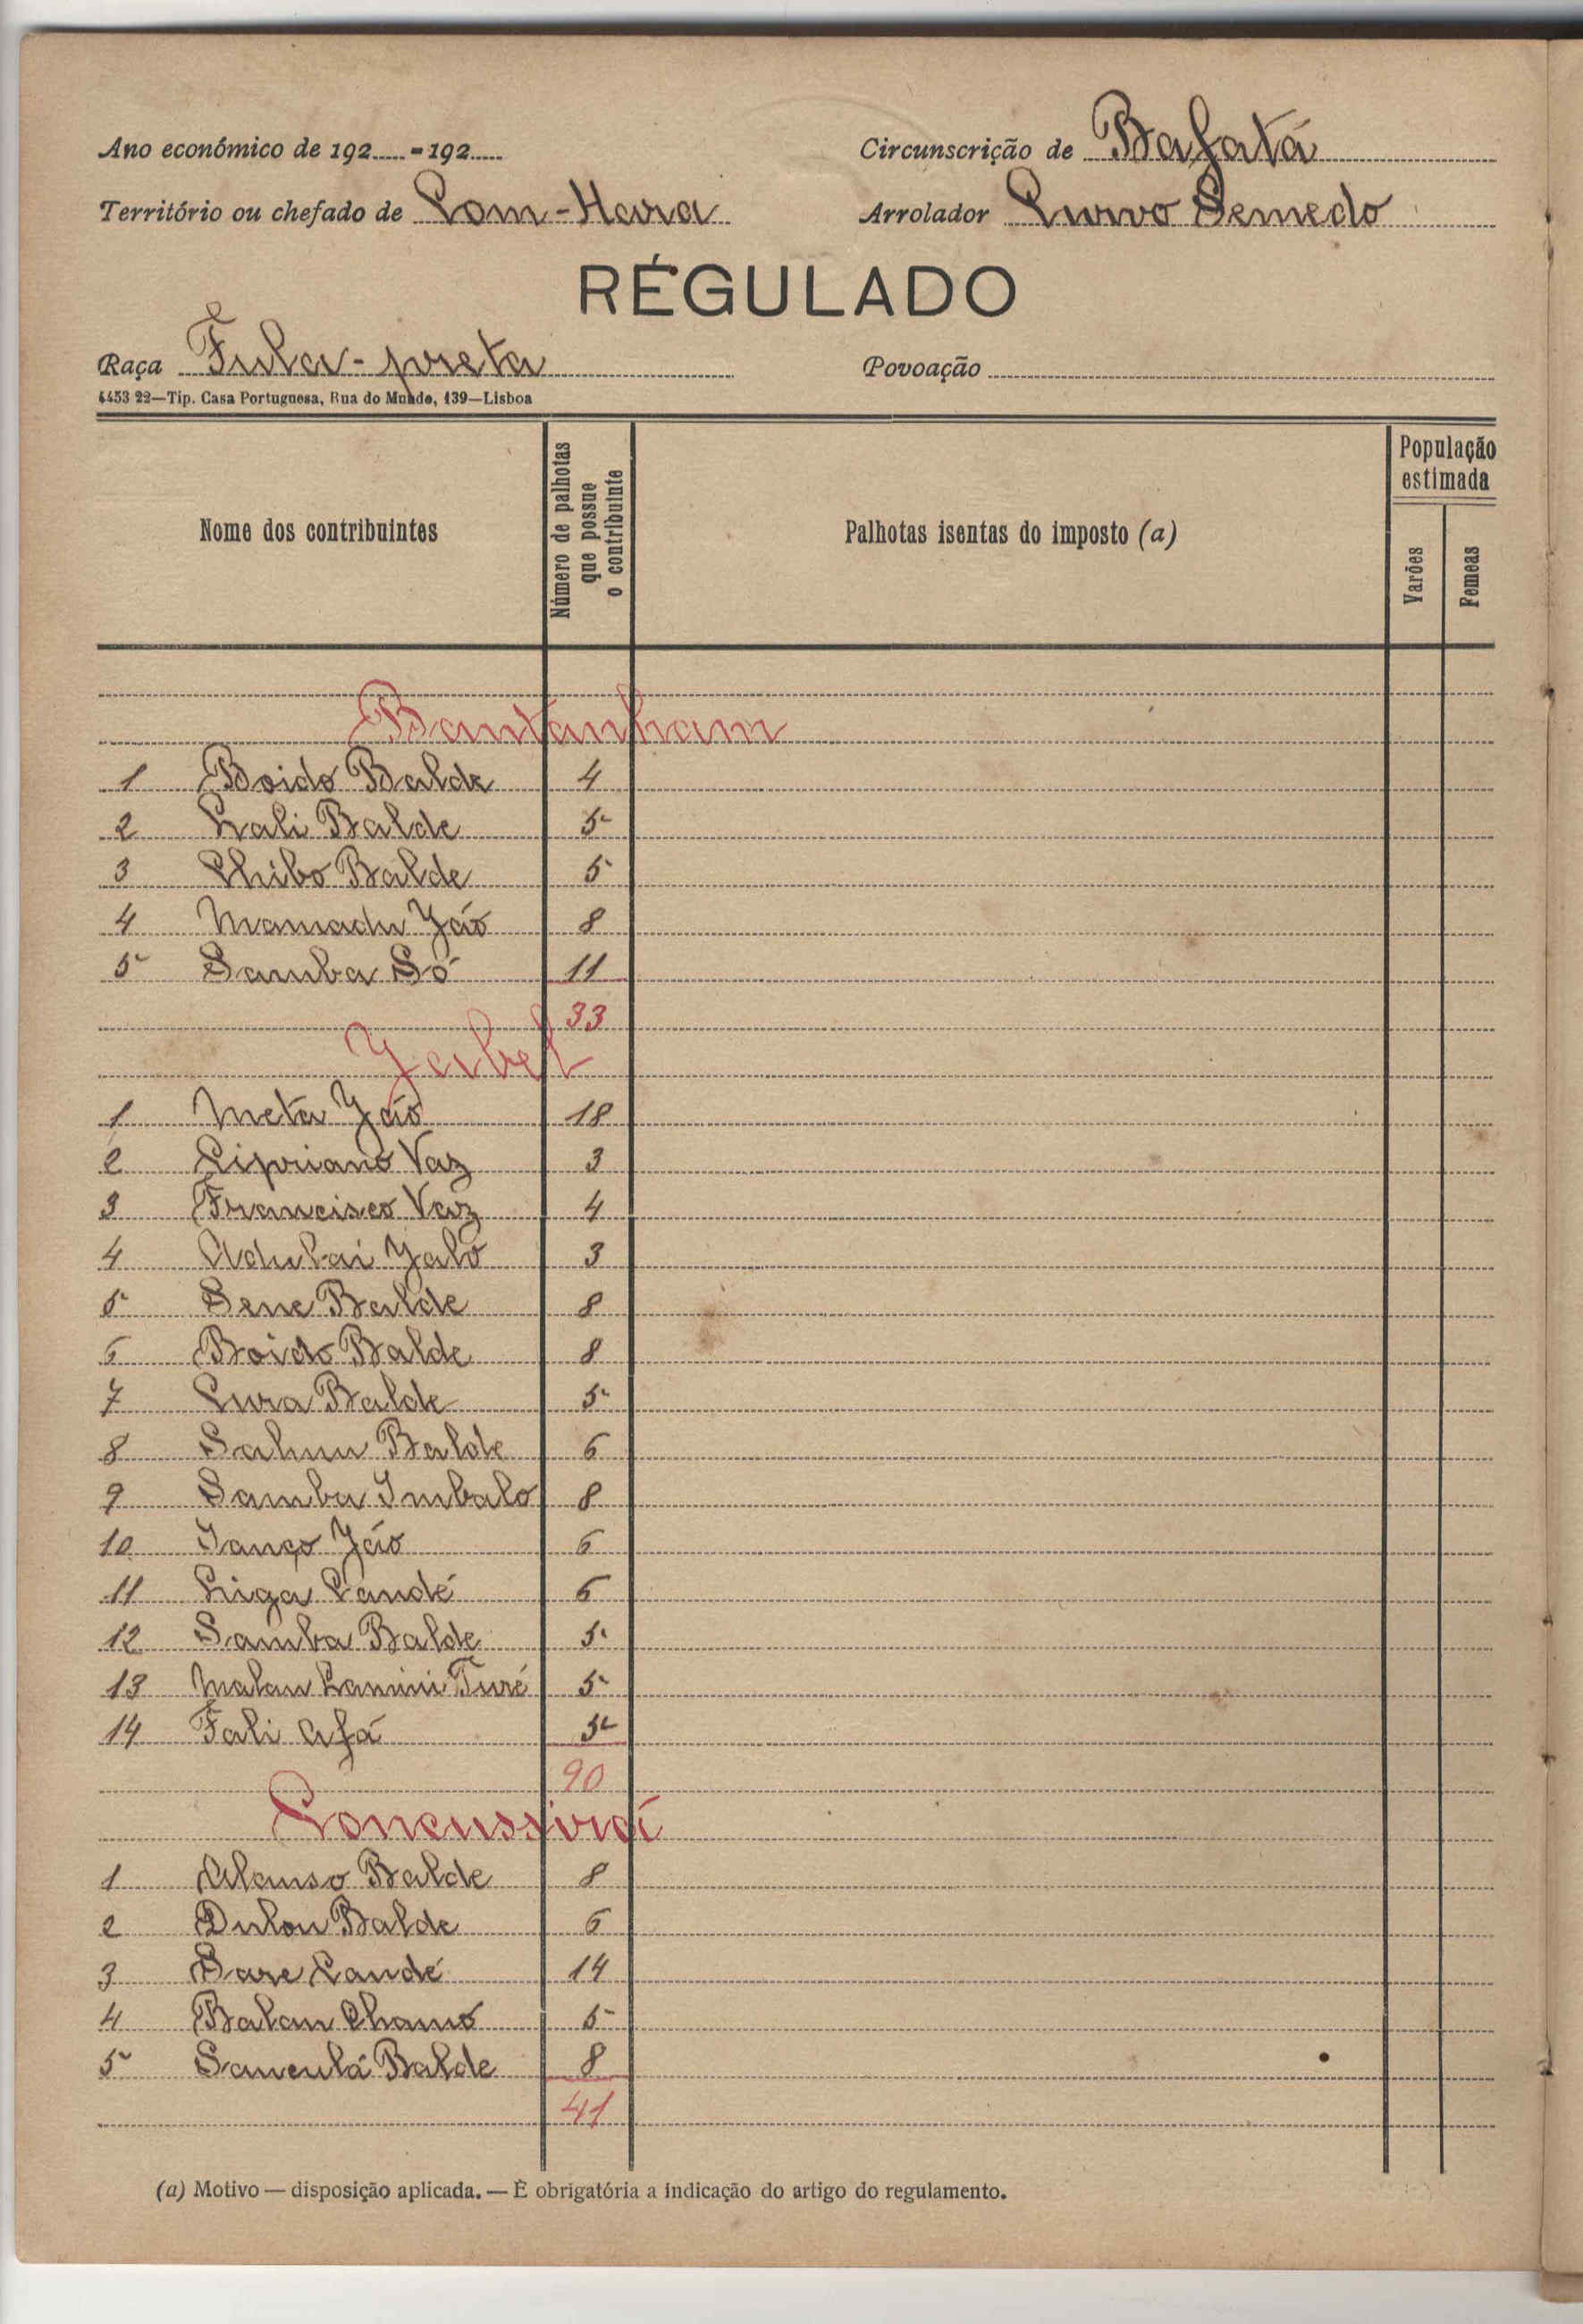 Ano económico de 192.....-192.....
Circunscrição de Bafatá
Território ou chefado de Com-Hara
Arrolador Curvo Semedo
RÉGULADO
Raça Fula-preta
Povoação
4453 22—Tip. Casa Portuguesa, Rua do Mundo, 139—Lisboa
Nome dos contribuintes
Número de palhotas que possue o contribuinte
Palhotas isentas do imposto (a)
População estimada
Varões
Femeas
Bantanham
1 Boido Balde 4
2 Lali Balde 5
3 Chibo Balde 5
4 Mamadu Jáo 8
5 Samba Só 11
33
Jabel
1 Meta Jáo 18
2 Cipriano Vaz 3
3 Francisco Vaz 4
4 Adulai Jaló 3
5 Sene Balde 8
6 Boido Balde 8
7 Cura Balde 5
8 Balde 6
9 Samba Imbalo 8
10 Jáo 6
11 Candé 6
12 Samba Balde 5
13 Malan Lamini Turé 5
14 Fali Afá 5
90
1 Alanso Balde 8
2 Balde 6
3 Sare Candé 14
4 Balan Chamó 5
5 Sanculá Balde 8
41
(a) Motivo — disposição aplicada. — É obrigatória a indicação do artigo do regulamento.